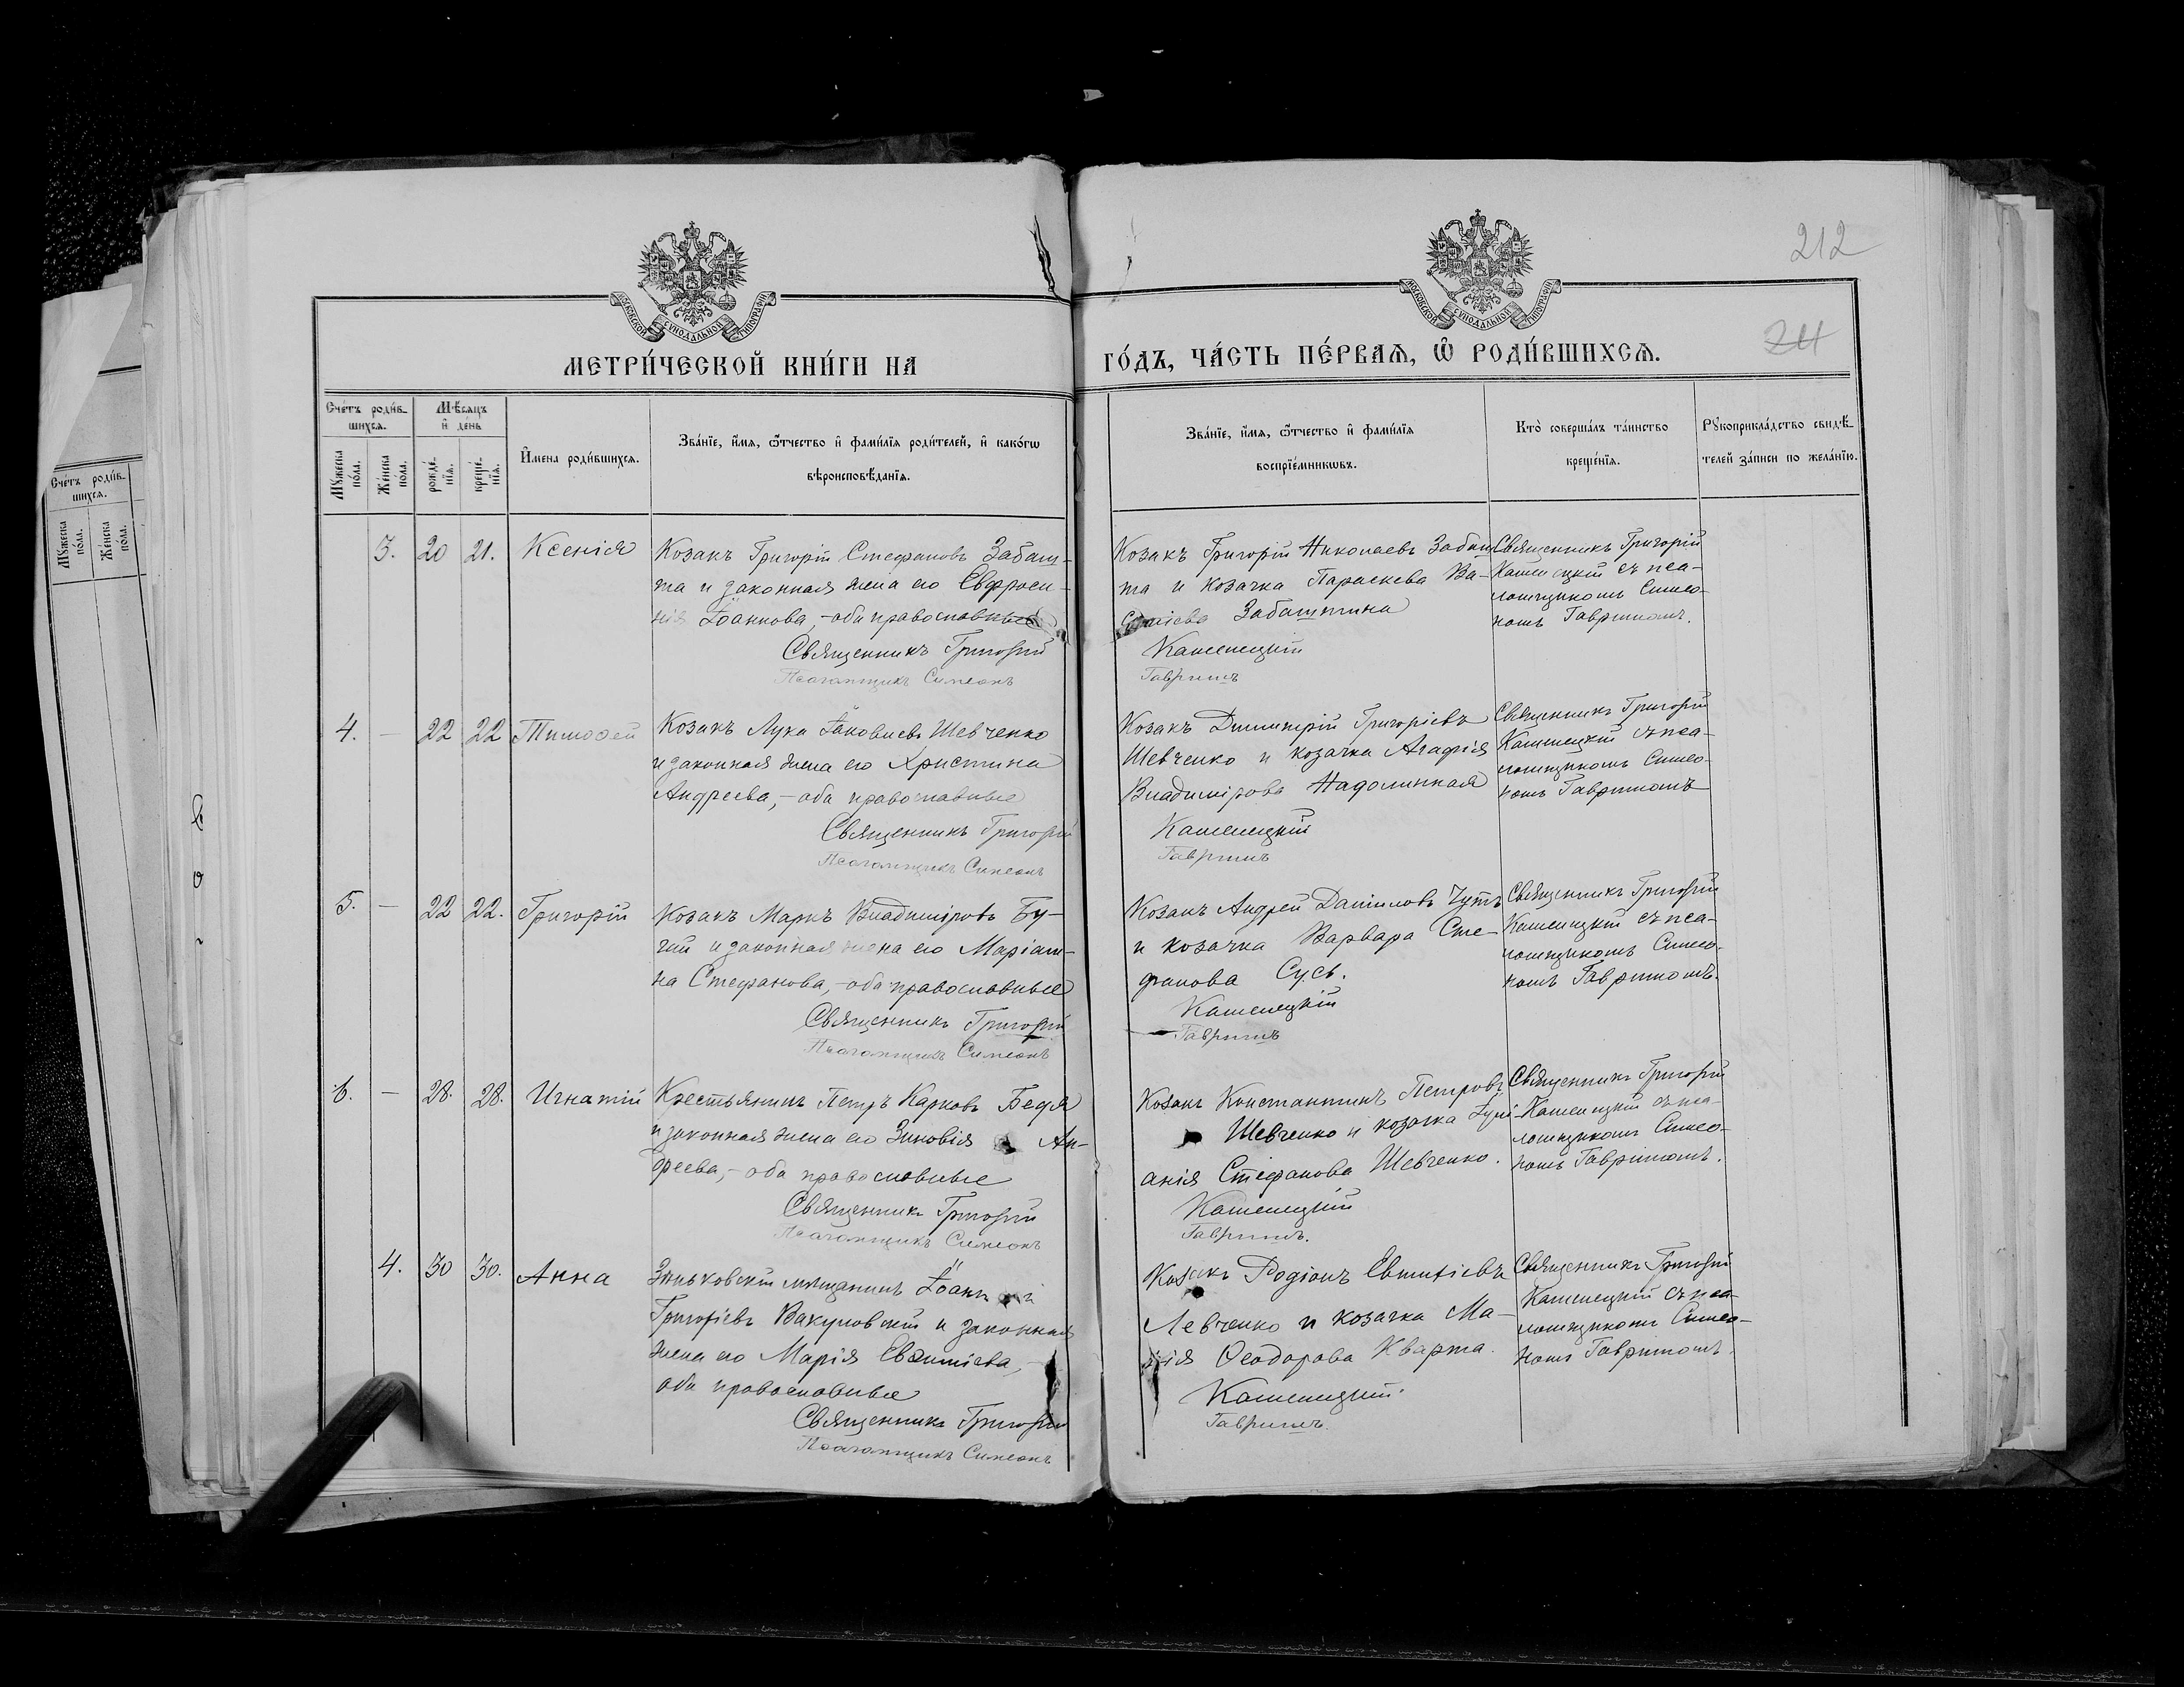 212
24
МОСКОВСКОЙ СѴНОДАЛЬНОЙ ТИПОГРАФІИ
МОСКОВСКОЙ СѴНОДАЛЬНОЙ ТИПОГРАФІИ
МЕТРИ́ЧЕСКОЙ КНИ́ГИ НА ГО́ДЪ, ЧА́СТЬ ПЕ́РВАѦ, Ѡ҆ РОДИ́ВШИХСѦ.
Сче́тъ роди́в-
шихсѧ.
Мꙋ́жеска по́ла.
Же́нска по́ла.
Мѣ́сѧцъ и҆ де́нь
рожде́-
нїѧ.
креще́-
нїѧ.
И҆мена роди́вшихсѧ.
Зва́нїе, и҆́мѧ, ѻ҆́тчество и҆ фами́лїѧ роди́телей, и҆ како́гѡ
вѣроисповѣ́данїѧ.
Зва́нїе, и҆́мѧ, ѻ҆́тчество и҆ фами́лїѧ
воспрїе́мникѡвъ.
Кто̀ соверша́лъ та́инство
креще́нїѧ.
Рꙋкоприкла́дство свидѣ́-
телей за́писи по жела́нїю.
Сче́тъ роди́в-
шихсѧ.
Мꙋ́жеска по́ла.
Же́нска по́ла.
3. 20 21. Ксенія
Козакъ Григорій Стефановъ Забаш-
та и законная жена его Евфроси-
нія Іоаннова, - оба православные
Священникъ Григорій
Псаломщикъ Симеонъ
Козакъ Григорій Николаевъ Забаш
та и козачка Параскева Ва-
Забаштина
Каменецкій
Гавришъ
Священникъ Григорій
Каменецкій съ пса-
ломщикомъ Симео-
номъ Гавришомъ.
4. - 22 22 Тимоѳей
Козакъ Лука Іаковлевъ Шевченко
и законная жена его Христина
Андреева, - оба православные
Священникъ Григорій
Псаломщикъ Симеонъ
Козакъ Димитрій Григоріевъ
Шевченко и козачка Агафія
Владимірова Надолинная
Каменецкій
Гавришъ
Священникъ Григорій
Каменецкій съ пса-
ломщикомъ Симео-
номъ Гавришомъ
5. - 22 22. Григорій
Козакъ Маркъ Владиміровъ Бу-
гай и законная жена его Маріам-
на Стефанова, - оба православные
Священникъ Григорій
Псаломщикъ Симеонъ
Козакъ Андрей Даніиловъ Чутъ
и козачка Варвара Сте-
фанова Сусь.
Каменецкій
Гавришъ
Священникъ Григорій
Каменецкій съ пса-
ломщикомъ Симео-
номъ Гавришомъ.
6. - 28. 28. Игнатій
Крестьянинъ Петръ Карповъ Бедя
и законная жена его Зиновія Ан-
дреева, - оба православные
Священникъ Григорій
Псаломщикъ Симеонъ
Козакъ Константинъ Петровъ
Шевченко и козачка Іулі-
анія Стефанова Шевченко.
Каменецкій
Гавришъ.
Священникъ Григорій
Каменецкій съ пса-
ломщикомъ Симео-
номъ Гавришомъ.
4. 30 30. Анна
Зѣньковскій мѣщанинъ Іоаннъ
Григоріевъ Вакуловскій и законная
жена его Марія Евѳиміева, -
оба православные
Священникъ Григорій
Псаломщикъ Симеонъ
Козакъ Родіонъ Евтихіевъ
Левченко и козачка Ма-
рія Ѳеодорова Кварта.
Каменецкій.
Гавришъ.
Священникъ Григорій
Каменецкій съ пса-
ломщикомъ Симео-
номъ Гавришомъ.